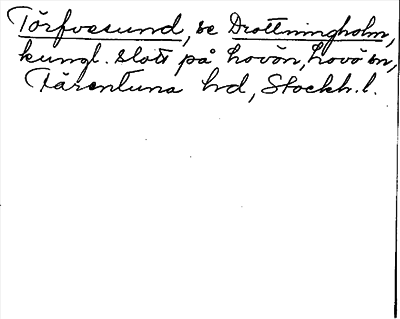 Törfvesund, se Drottningholm,
kungl. slott på Lovön, Lovö sn,
Färentuna hd, Stockh. l.